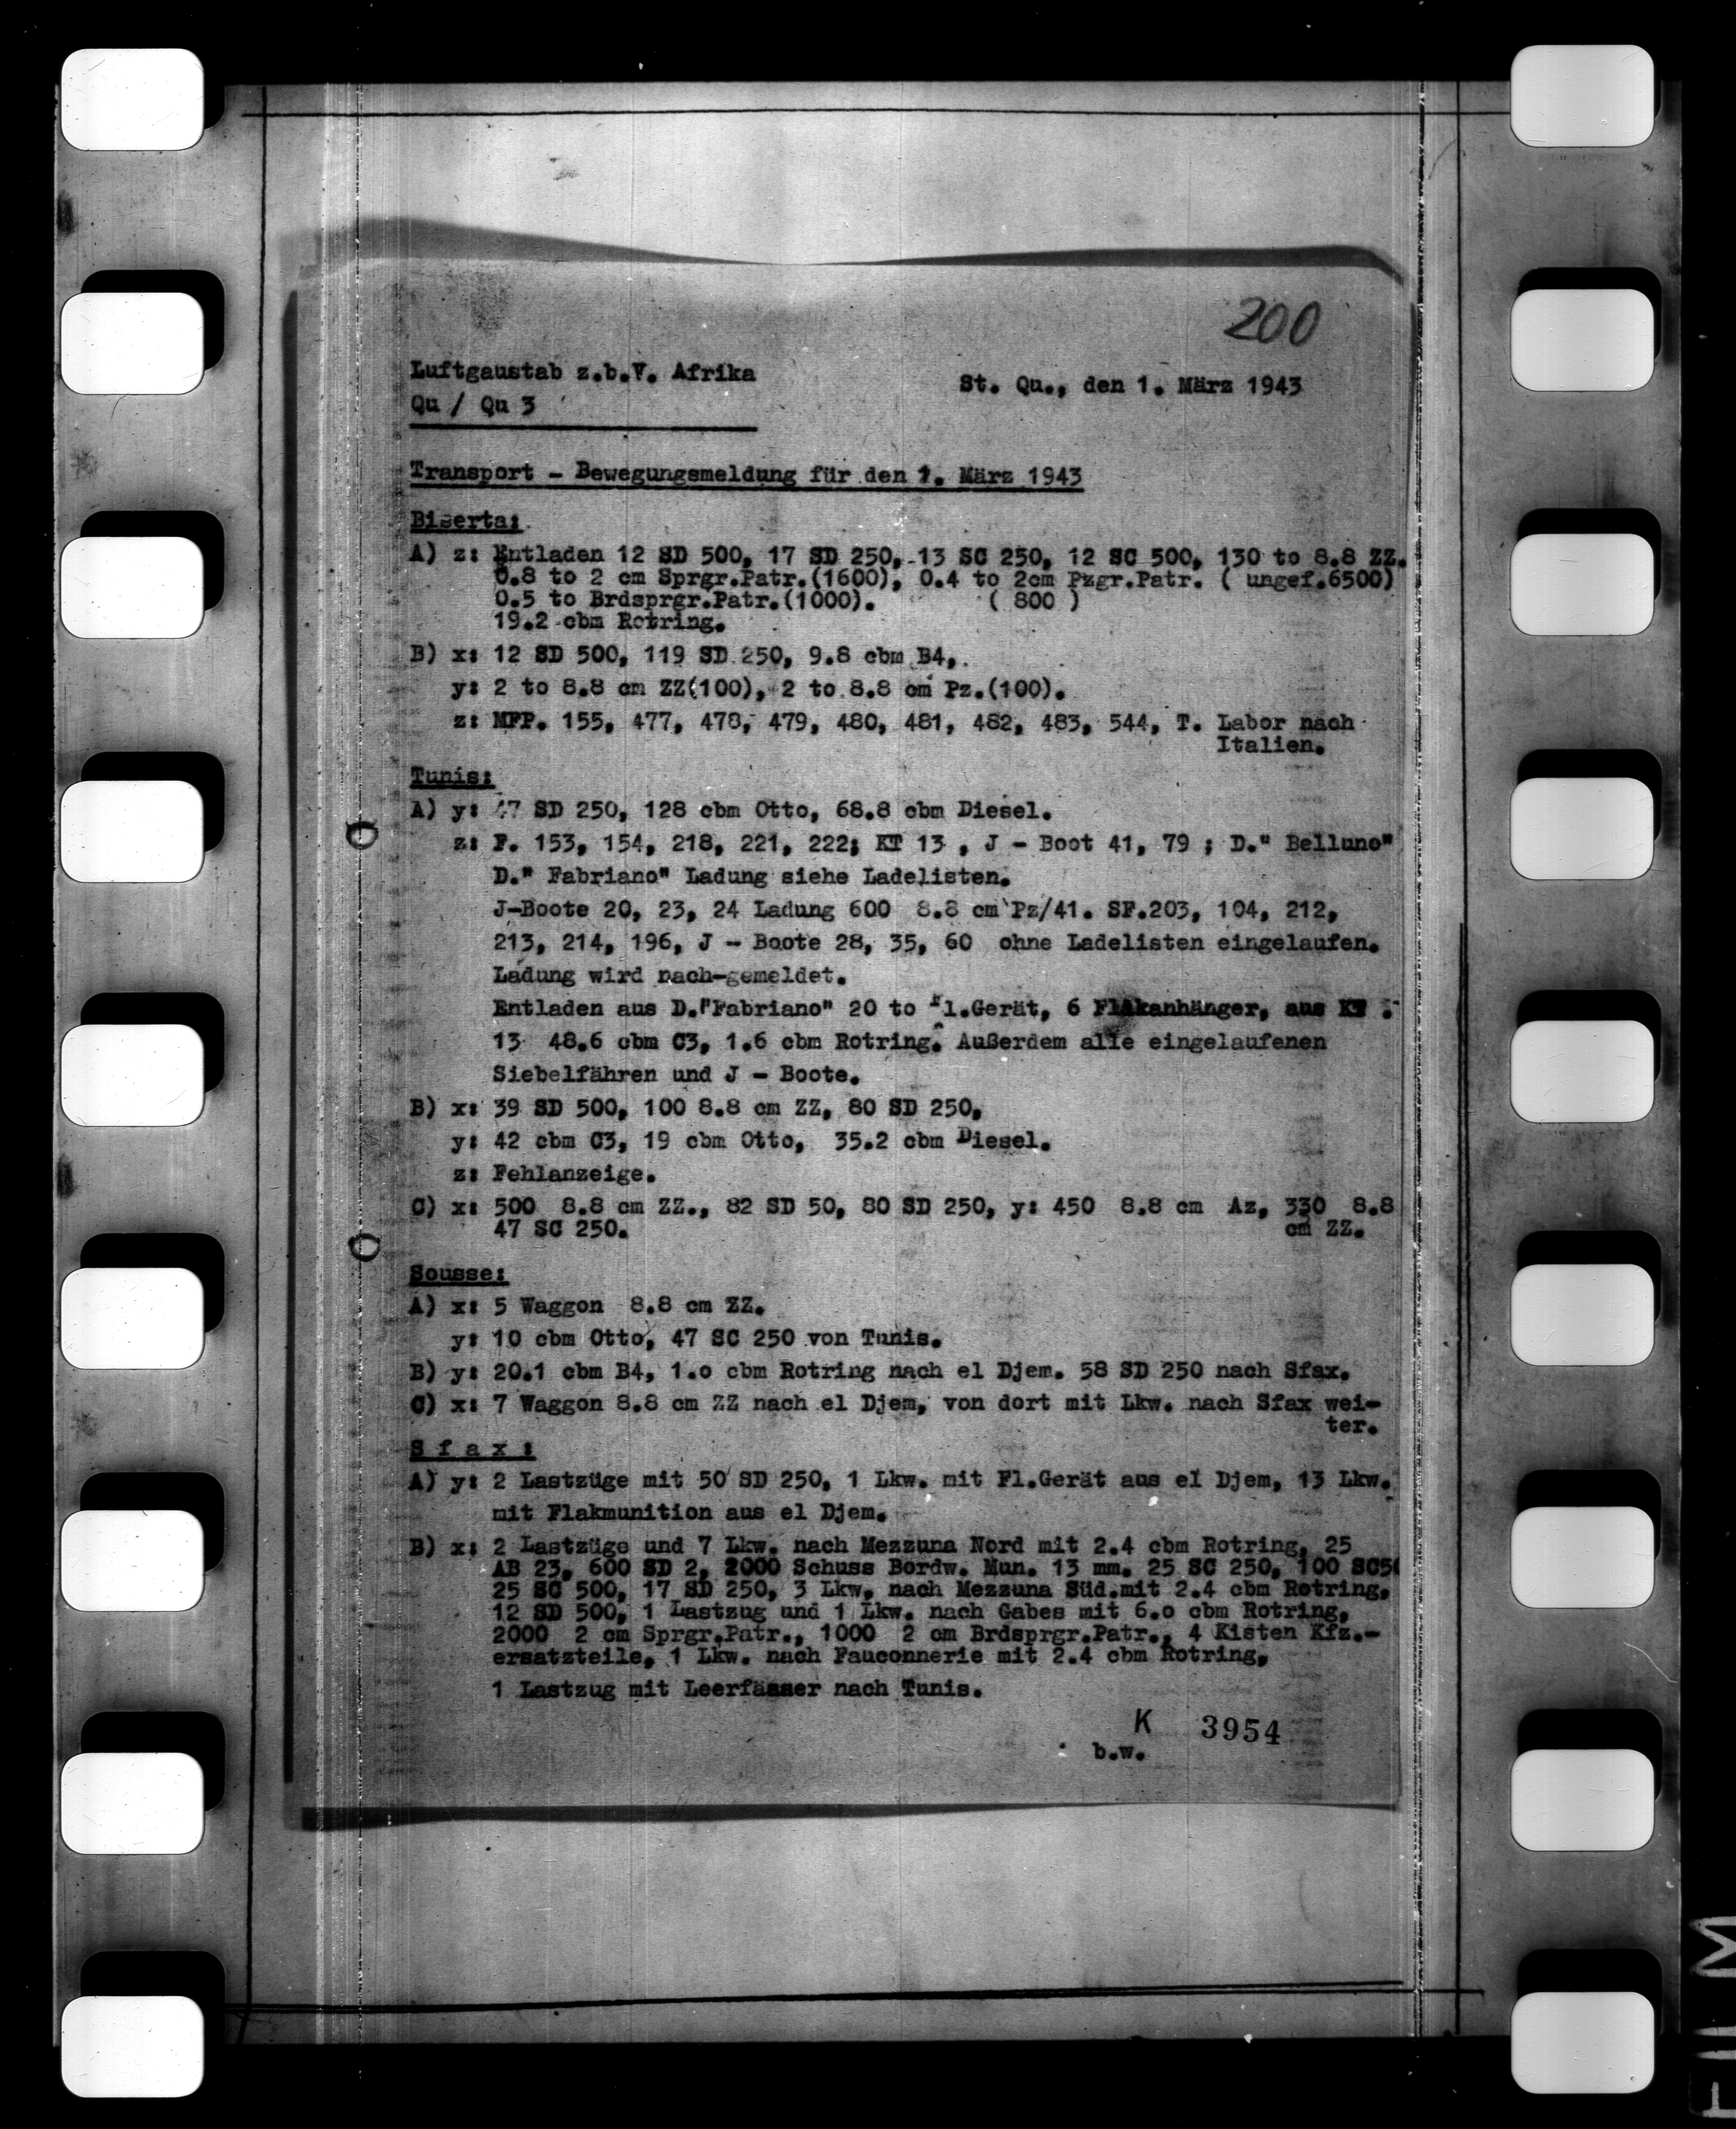 200
Luftgaustab z.b.V. Afrika
St. Qu., den 1. März 1943
Qu / Qu 3
Transport - Bewegungsmeldung für den 1. März 1943
Biserta:
A) z: Entladen 12 SD 500, 17 SD 250, 13 SC 250, 12 SC 500, 130 to 8.8 ZZ.
0.8 to 2 cm Sprgr.Patr.(1600), 0.4 to 2cm Pzgr.Patr. ( ungef.6500)
0.5 to Brdsprgr.Patr.(1000). ( 800 )
19.2 cbm Rotring.
B) x: 12 SD 500, 119 SD 250, 9.8 cbm B4,.
y: 2 to 8.8 cm ZZ(100), 2 to 8.8 cm Pz.(100).
z: MFP. 155, 477, 478, 479, 480, 481, 482, 483, 544, T. Labor nach
Italien.
Tunis:
A) y: 47 SD 250, 128 cbm Otto, 68.8 cbm Diesel.
z: F. 153, 154, 218, 221, 222; KT 13 , J - Boot 41, 79 ; D." Belluno"
D." Fabriano" Ladung siehe Ladelisten.
J-Boote 20, 23, 24 Ladung 600 8.8 cm Pz/41. SF.203, 104, 212,
213, 214, 196, J - Boote 28, 35, 60 ohne Ladelisten eingelaufen.
Ladung wird nach-gemeldet.
Entladen aus D."Fabriano" 20 to Fl.Gerät, 6 Flakanhänger, aus KT
13 48.6 cbm C3, 1.6 cbm Rotring. Außerdem alle eingelaufenen
Siebelfähren und J - Boote.
B) x: 39 SD 500, 100 8.8 cm ZZ, 80 SD 250,
y: 42 cbm C3, 19 cbm Otto, 35.2 cbm Diesel.
z: Fehlanzeige.
C) x: 500 8.8 cm ZZ., 82 SD 50, 80 SD 250, y: 450 8.8 cm Az, 330 8.8
47 SC 250. cm ZZ.
Sousse:
A) x: 5 Waggon 8.8 cm ZZ.
y: 10 cbm Otto, 47 SC 250 von Tunis.
B) y: 20.1 cbm B4, 1.o cbm Rotring nach el Djem. 58 SD 250 nach Sfax.
C) x: 7 Waggon 8.8 cm ZZ nach el Djem, von dort mit Lkw. nach Sfax wei-
ter.
S f a x :
A) y: 2 Lastzüge mit 50 SD 250, 1 Lkw. mit Fl.Gerät aus el Djem, 13 Lkw.
mit Flakmunition aus el Djem.
B) x: 2 Lastzüge und 7 Lkw. nach Mezzuna Nord mit 2.4 cbm Rotring, 25
AB 23, 600 SD 2, 2000 Schuss Bordw. Mun. 13 mm. 25 SC 250, 100 SC50
25 SC 500, 17 SD 250, 3 Lkw. nach Mezzuna Süd.mit 2.4 cbm Rotring,
12 SD 500, 1 Lastzug und 1 Lkw. nach Gabes mit 6.o cbm Rotring,
2000 2 cm Sprgr.Patr., 1000 2 cm Brdsprgr.Patr., 4 Kisten Kfz.-
ersatzteile, 1 Lkw. nach Fauconnerie mit 2.4 cbm Rotring,
1 Lastzug mit Leerfässer nach Tunis.
K 3954
b.w.